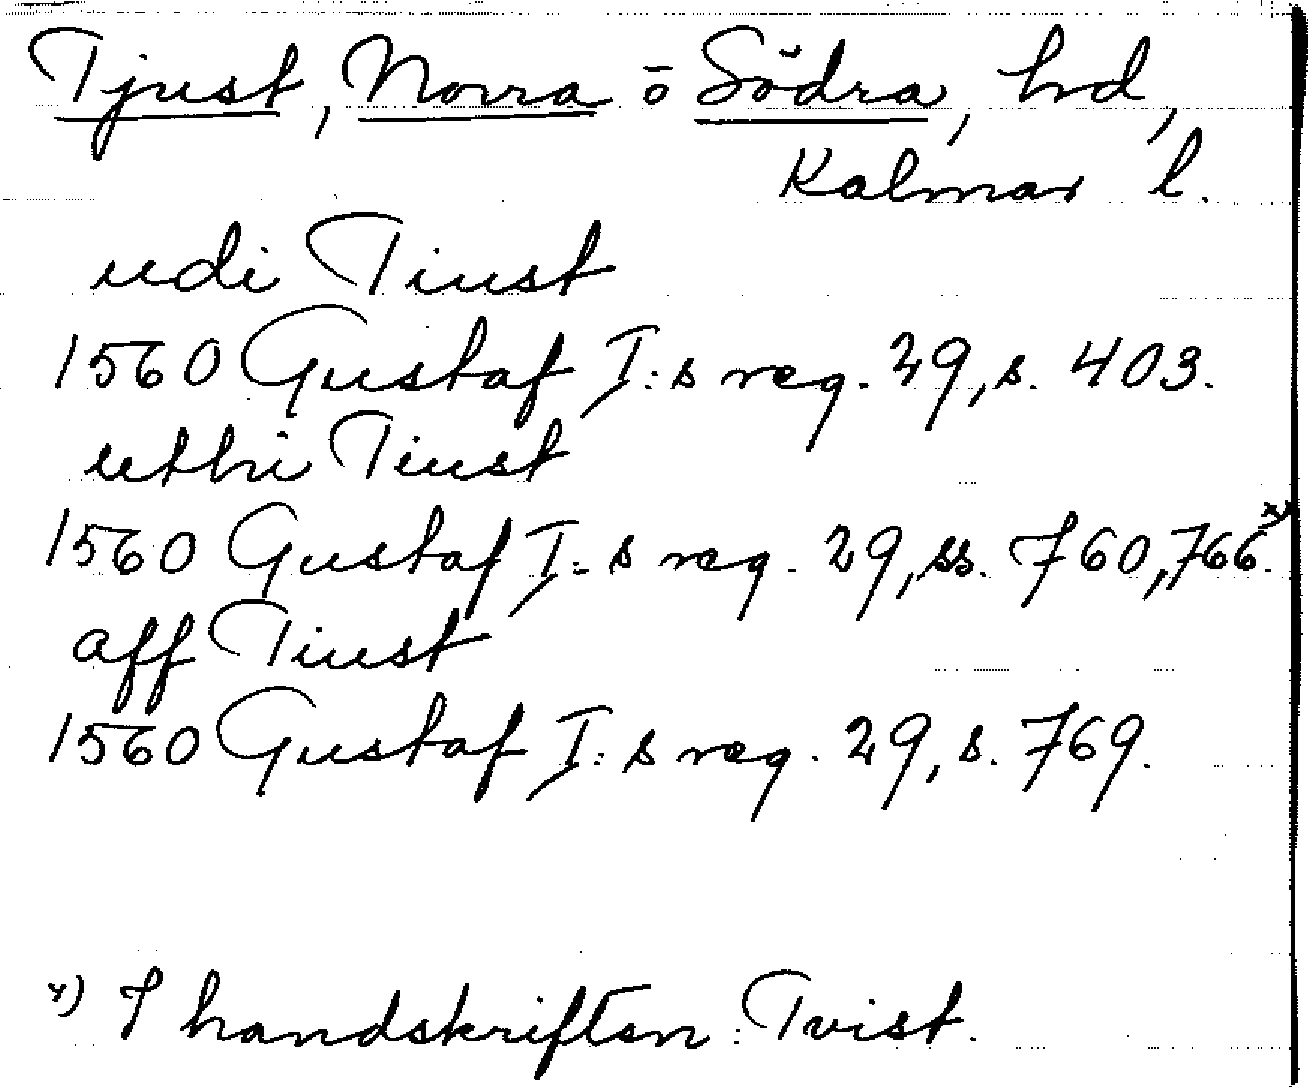 Tjust, Norra o Södra, hd,
Kalmar l.
udi Tiust
1560 Gustaf I:s reg. 29, s. 403.
uthi Tiust
1560 Gustaf I:s reg. 29, ss. 760, 766.x)
aff Tiust
1560 Gustaf I:s reg. 29, s. 769.
x) I handskriften: Tvist.